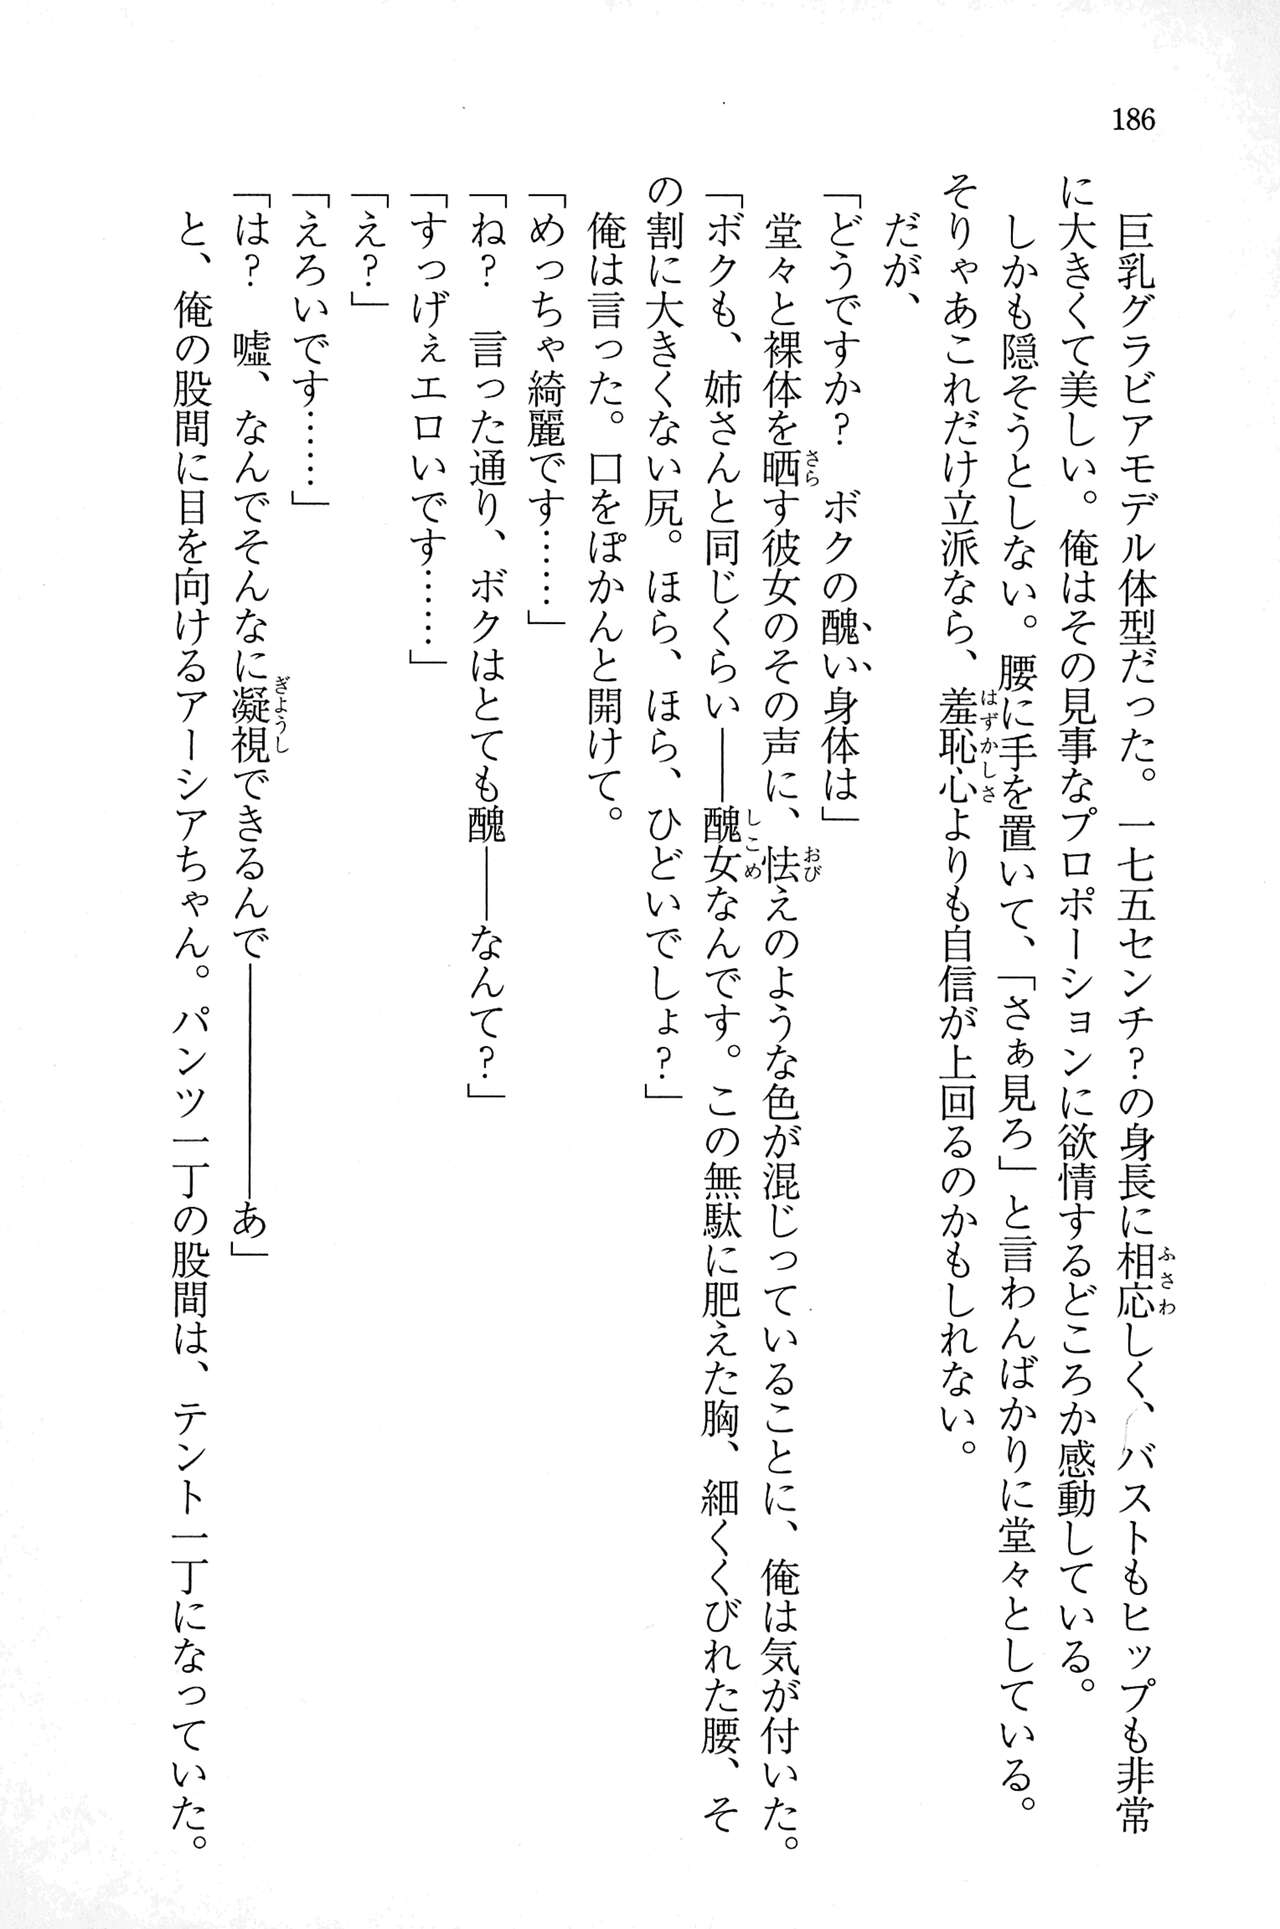 186
巨乳グラビアモデル体型だった。一七五センチ?の身長に相応しく、バストもヒップも非常
に大きくて美しい。俺はその見事なプロポーションに欲情するどころか感動している。
しかも隠そうとしない。腰に手を置いて、「さぁ見ろ」と言わんばかりに堂々としている。
そりゃあこれだけ立派なら、羞恥心よりも自信が上回るのかもしれない。
だが、
「どうですか? ボクの醜い身体は」
堂々と裸体を晒す彼女のその声に、怯えのような色が混じっていることに、俺は気が付いた。
「ボクも、姉さんと同じくらい――醜女なんです。この無駄に肥えた胸、細くくびれた腰、そ
の割に大きくない尻。ほら、ほら、ひどいでしょ?」
俺は言った。口をぽかんと開けて。
「めっちゃ綺麗です……」
「ね? 言った通り、ボクはとても醜――なんて?」
「すっげぇエロいです……」
「え?」
「えろいです……」
「は? 嘘、なんでそんなに凝視できるんで――――――あ」
と、俺の股間に目を向けるアーシアちゃん。パンツ一丁の股間は、テント一丁になっていた。